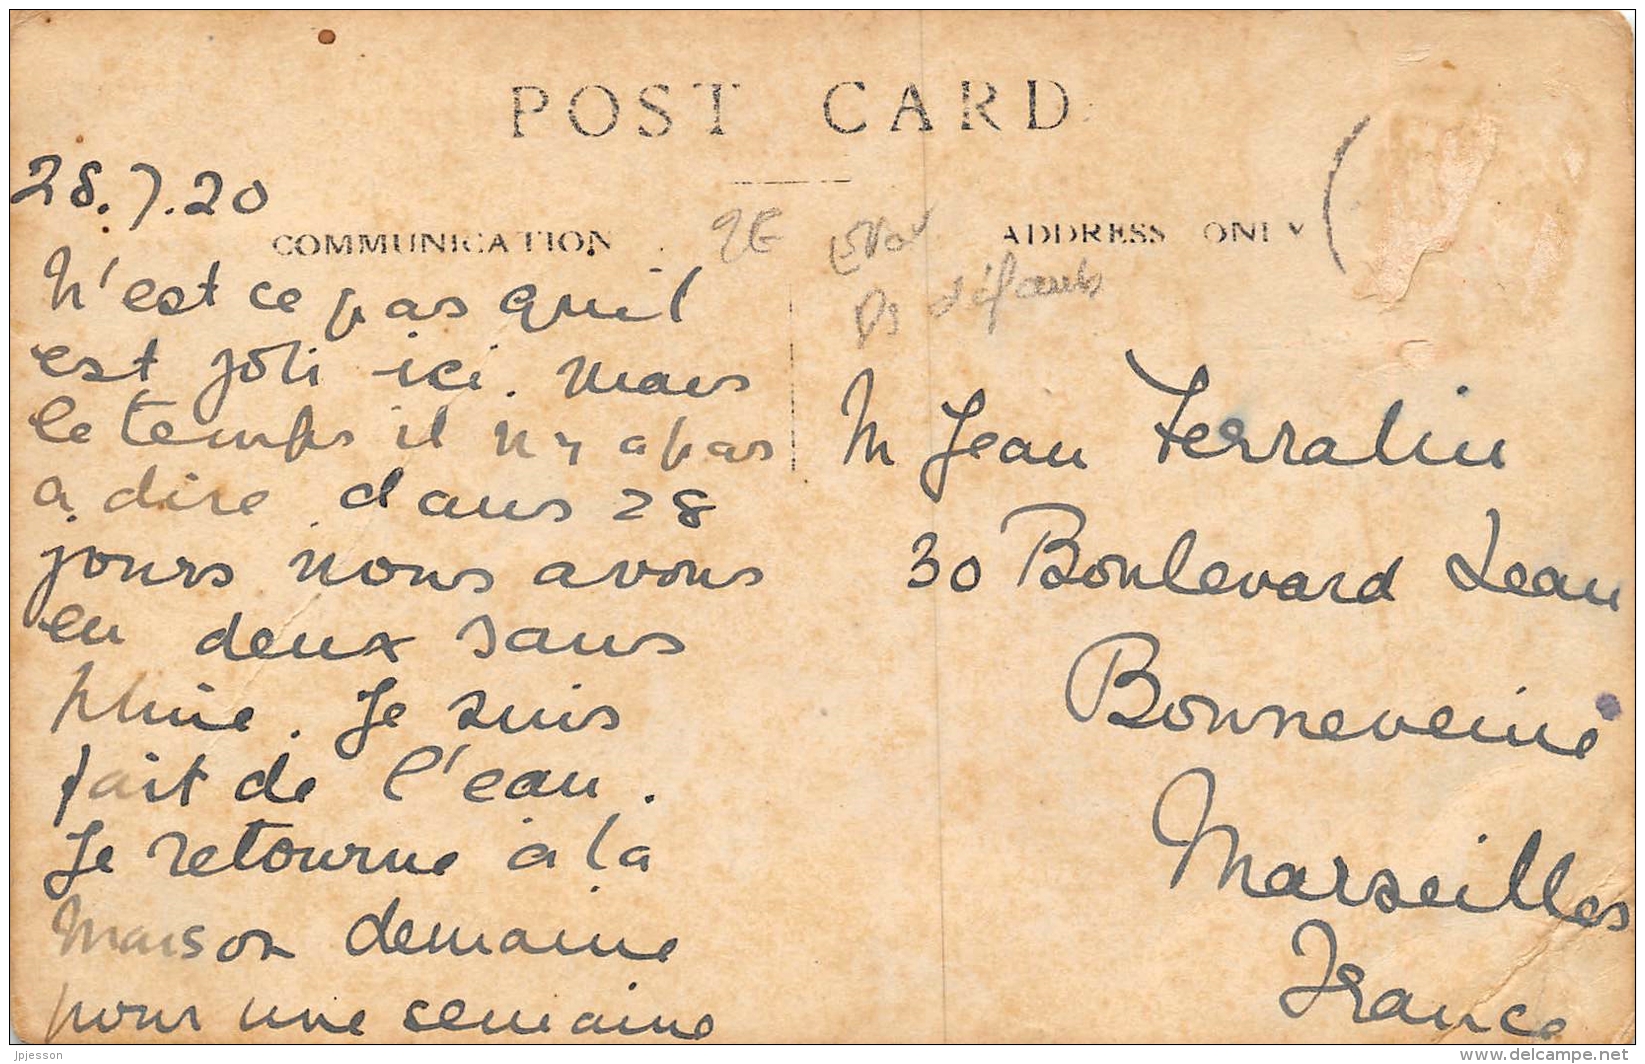 POST CARD
28.7.20
COMMUNICATION
ADDRESS ONLY
N'est ce pas quil
est joli ici. Mais
le temps il n y a pas
a dire dans 28
jours nous avons
eu deux sans
pluie. Je suis
fait de l'eau.
Je retourne à la
maison demaine
pour une semaine
défauts
M Jean Terralin
30 Boulevard Jean
Bonneveine
Marseilles
France
jpjesson
www.delcampe.net